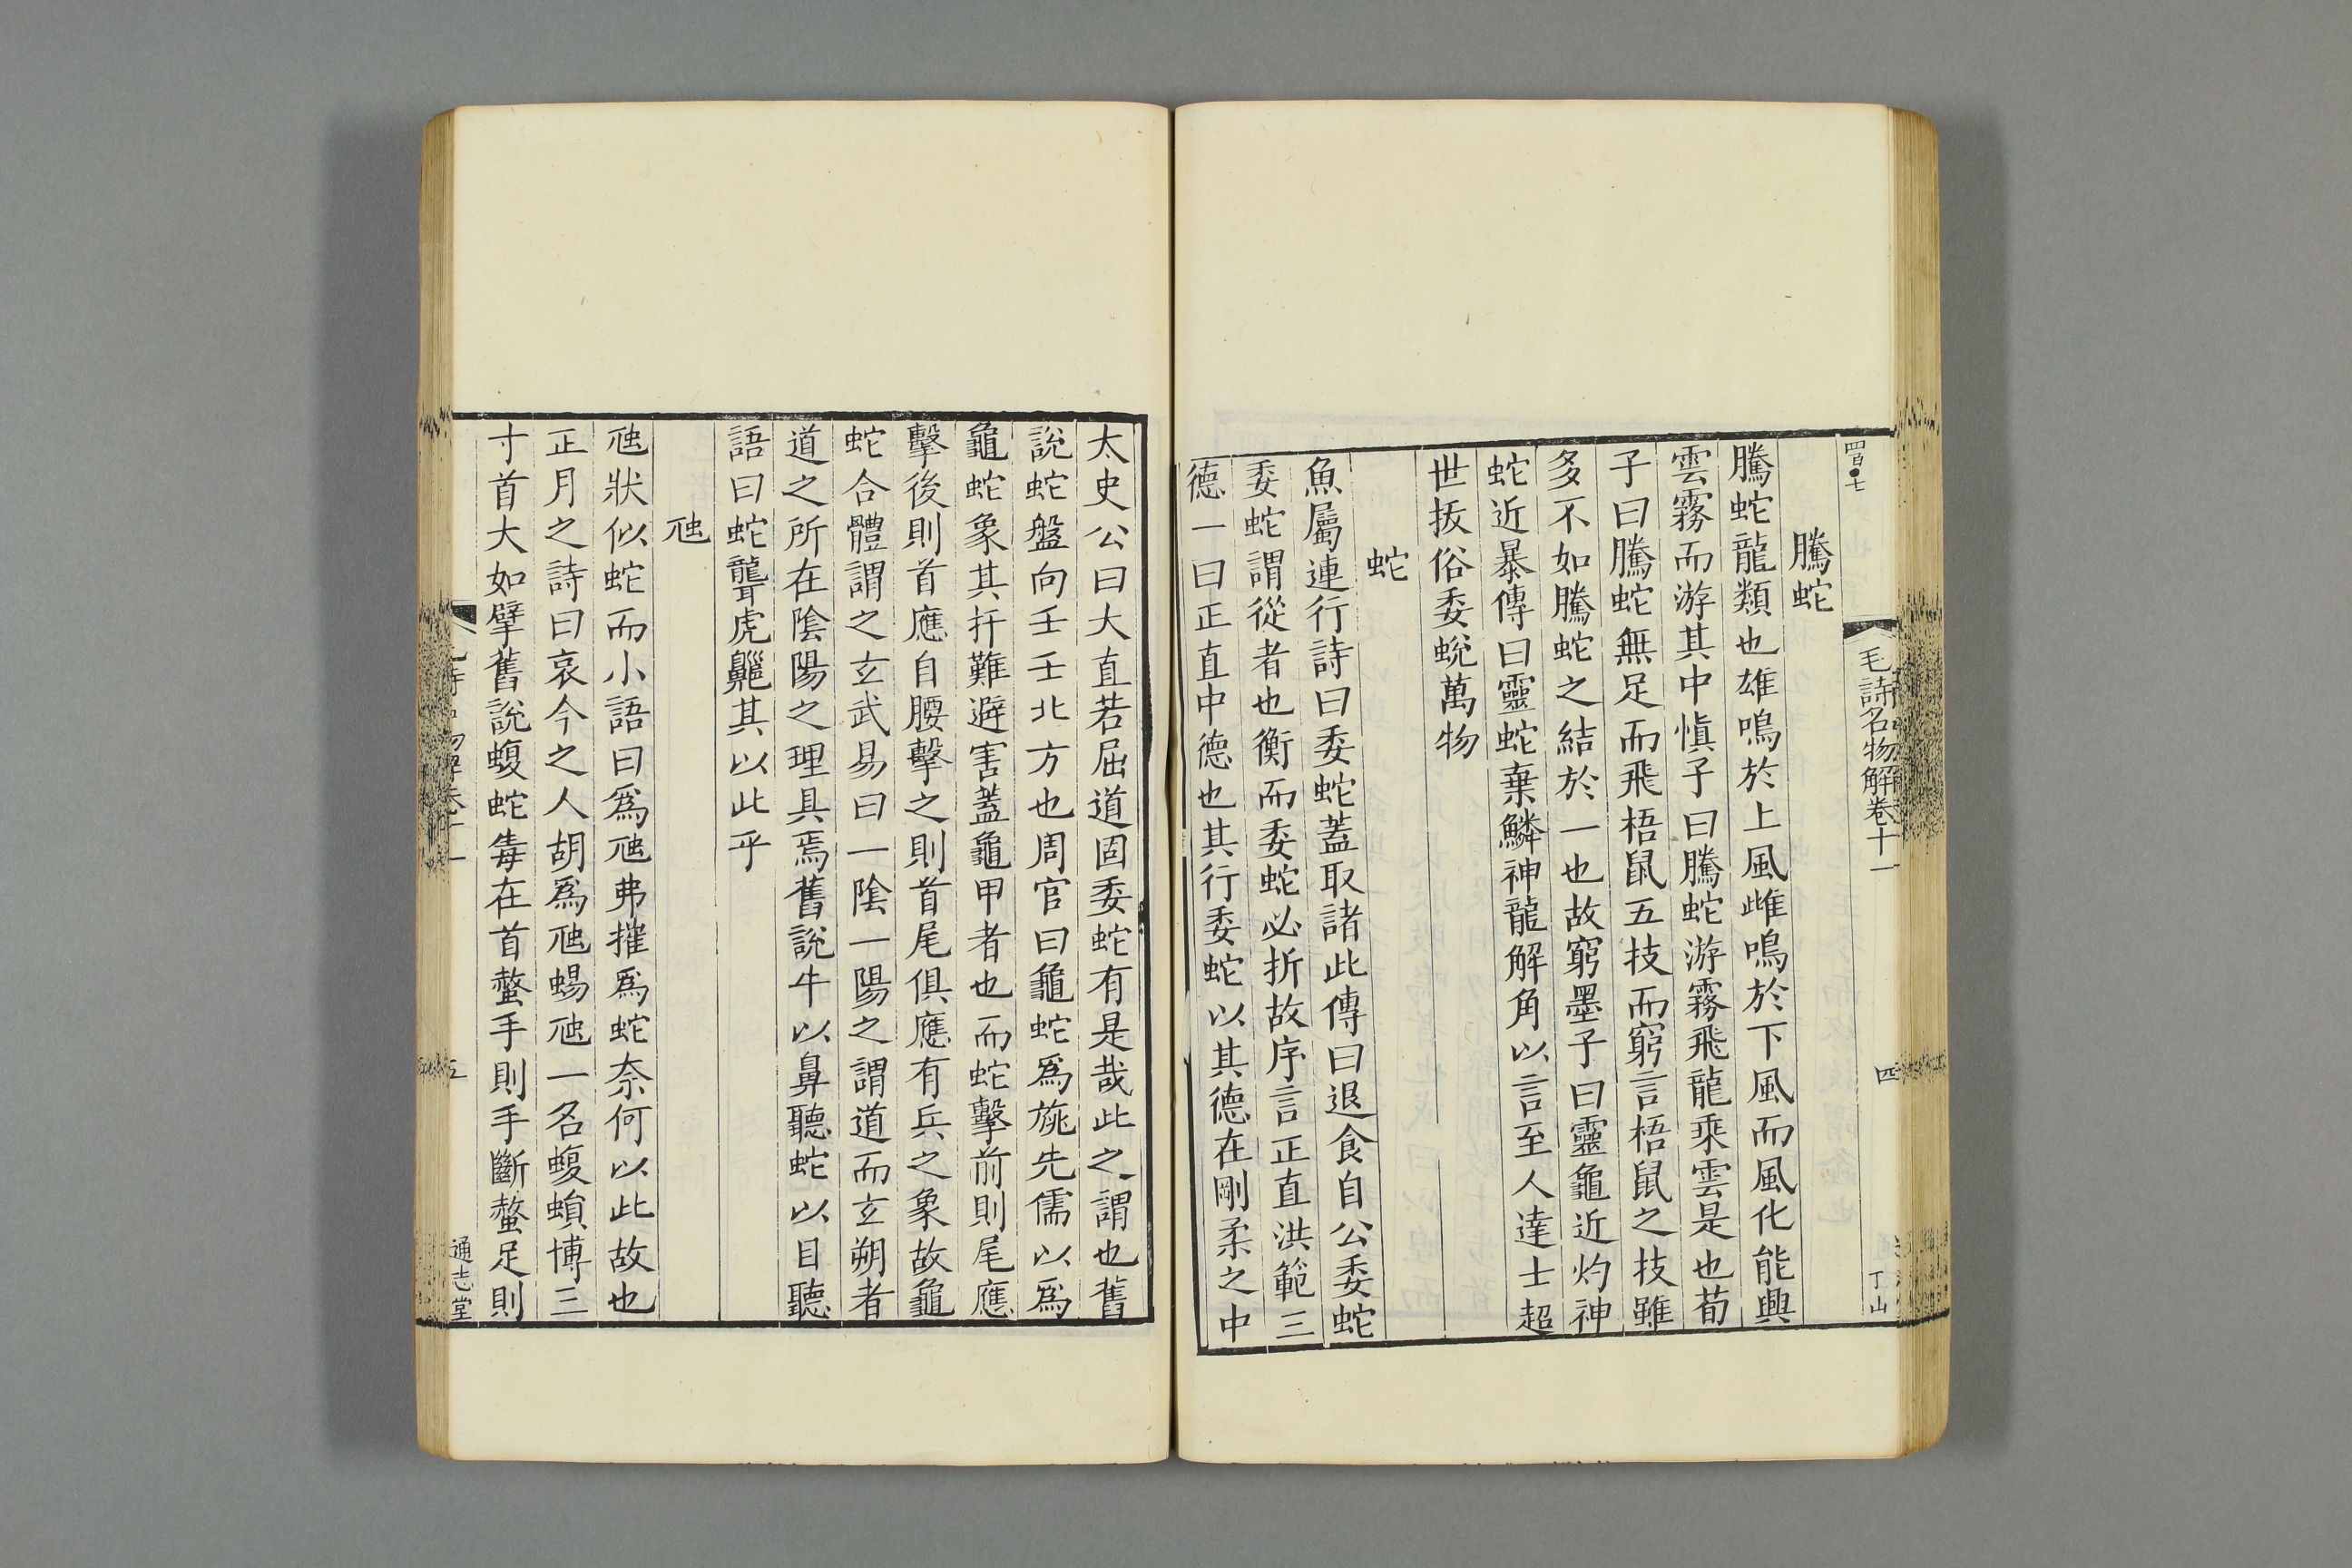 四百●七
毛詩名物解卷十一
四
丁山
騰蛇
騰蛇龍類也雄鳴於上風雌鳴於下風而風化能興
雲霧而游其中愼子曰騰蛇游霧飛龍乘雲是也荀
子曰騰蛇無足而飛梧鼠五技而窮言梧鼠之技雖
多不如騰蛇之結於一也故窮墨子曰靈龜近灼神
蛇近暴傳曰靈蛇棄鱗神龍解角以言至人達士超
世拔俗委蛻萬物
蛇
魚屬連行詩曰委蛇蓋取諸此傳曰退食自公委蛇
委蛇謂從者也衡而委蛇必折故序言正直洪範三
德一曰正直中德也其行委蛇以其德在剛柔之中
太史公曰大直若屈道固委蛇有是哉此之謂也舊
說蛇盤向壬壬北方也周官曰龜蛇爲旐先儒以爲
龜蛇象其扞難避害蓋龜甲者也而蛇擊前則尾應
擊後則首應自腰擊之則首尾俱應有兵之象故龜
蛇合體謂之玄武易曰一陰一陽之謂道而玄朔者
道之所在陰陽之理具焉舊說牛以鼻聽蛇以目聽
語曰蛇聾虎齆其以此乎
虺
虺狀似蛇而小語曰爲虺弗摧爲蛇奈何以此故也
正月之詩曰哀今之人胡爲虺蜴虺一名蝮螾博三
寸首大如擘舊說蝮蛇毒在首螫手則手斷螫足則
五
通志堂